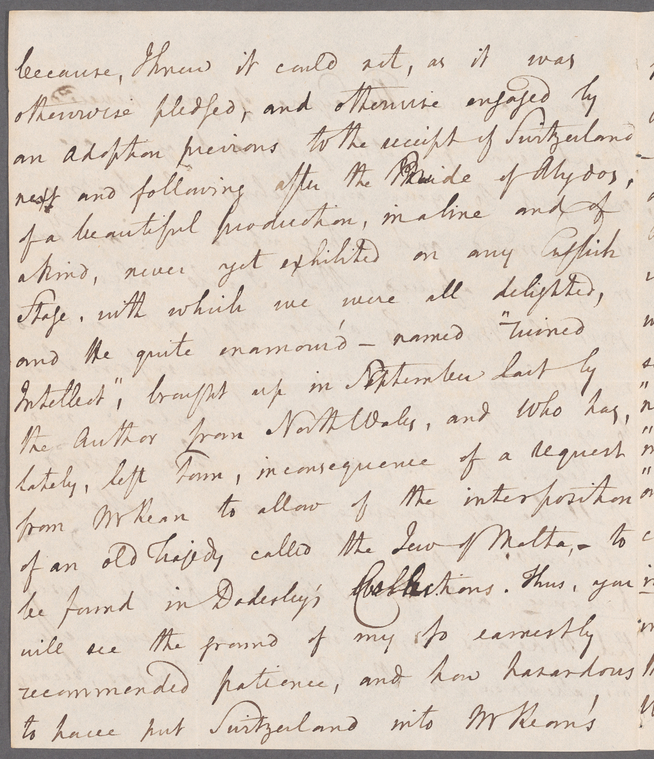 because, I knew it could not, as it was
otherwise pledged, and otherwise engaged by
an adoption previous to the receipt of Switzerland
next and following after the Bride of Abydos,
of a beautiful production, in a line and of
a kind, never yet exhibited on any English
Stage, with which we were all delighted,
and He quite enamour'd — named "Ruined
Intellect", brought up in September last by
the Author from North Wales, and who has,
lately, left Town, in consequence of a request
from Mr Kean to allow of the interposition
of an old Trajedy called the Jew of Malta, - to
be found in Dodesley's Collections. Thus, you
will see the ground of my so earnestly
recommended patience, and how hazardous
to have put Switzerland into Mr Kean's